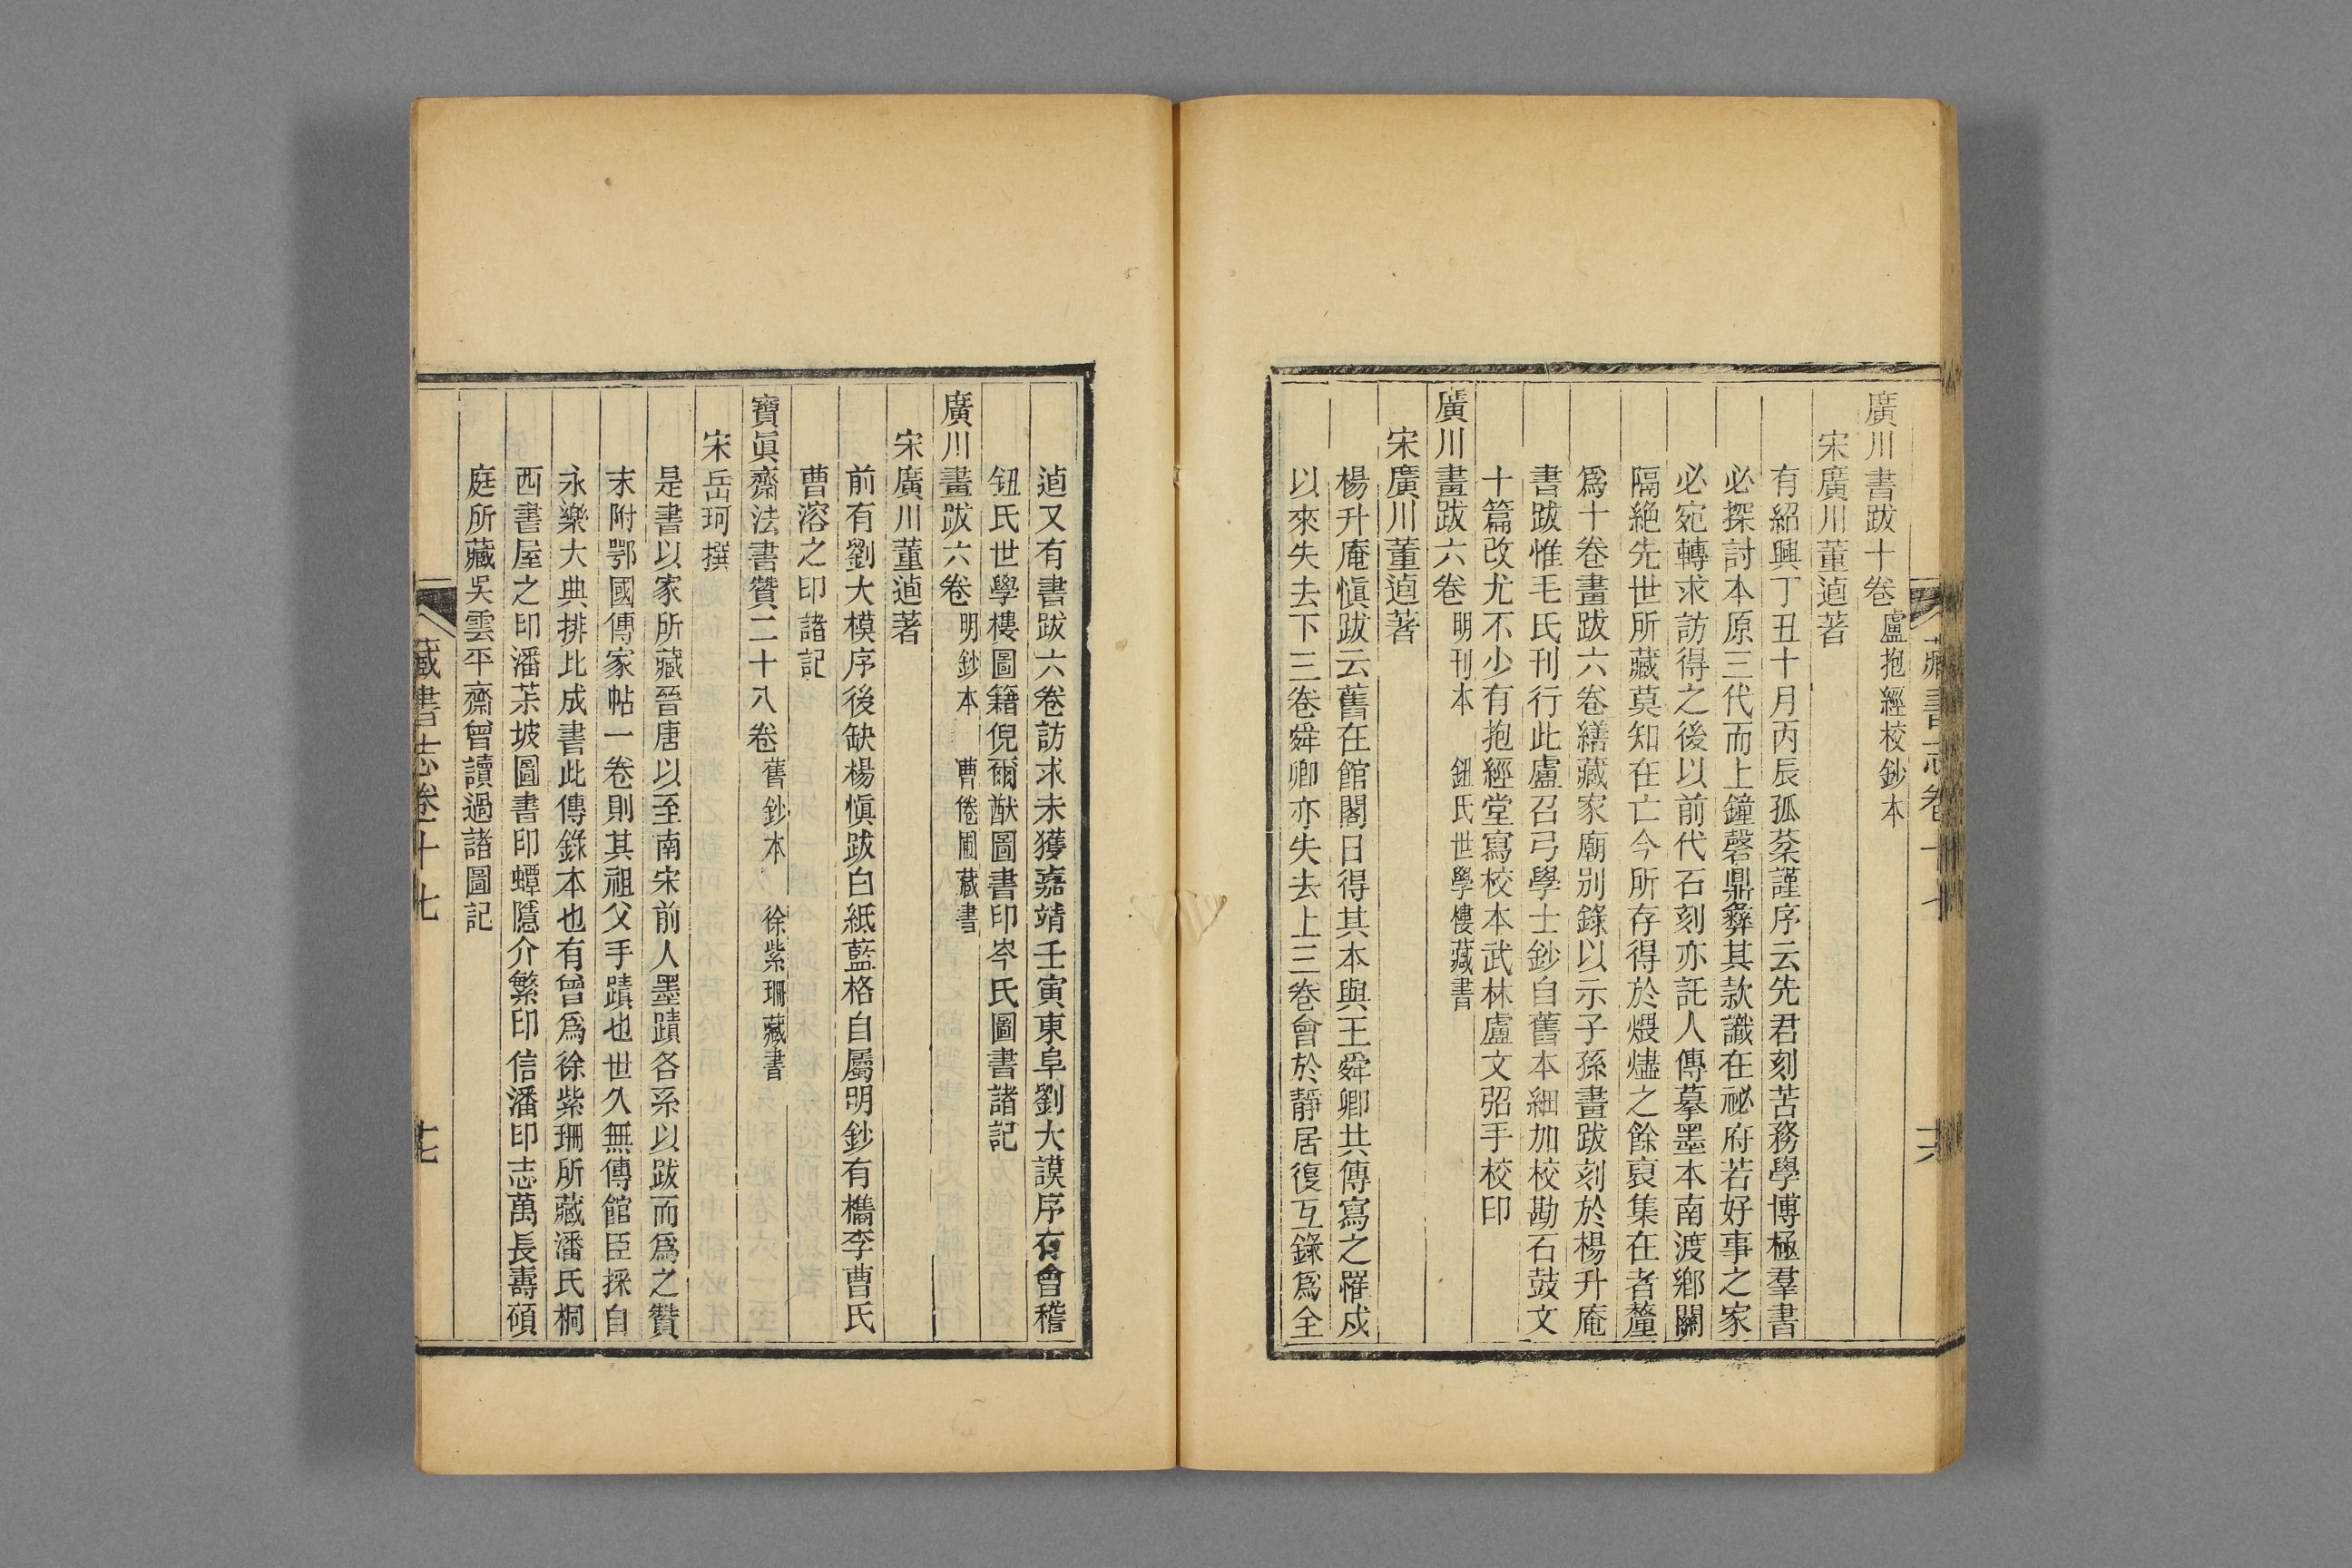 藏書志卷十七
廣川書跋十卷 盧抱經校鈔本
宋廣川董逌著
有紹興丁丑十月丙辰孤棻謹序云先君刻苦務學博極羣書
必探討本原三代而上鐘磬鼎彝其款識在祕府若好事之家
必宛轉求訪得之後以前代石刻亦託人傳摹墨本南渡鄉關
隔絶先世所藏莫知在亡今所存得於煨燼之餘裒集在者釐
爲十卷畫跋六卷繕藏家廟别錄以示子孫畫跋刻於楊升庵
書跋惟毛氏刊行此盧召弓學士鈔自舊本細加校勘石鼓文
十篇改尤不少有抱經堂寫校本武林盧文弨手校印
廣川畫跋六卷 明刊本 鈕氏世學樓藏書
宋廣川董逌著
楊升庵愼跋云舊在館閣日得其本與王舜卿共傳寫之罹戍
以來失去下三卷舜卿亦失去上三卷會於靜居復互錄爲全
逌又有書跋六卷訪求未獲嘉靖壬寅東阜劉大謨序有會稽
鈕氏世學樓圖籍倪爾猷圖書印岑氏圖書諸記
廣川畫跋六卷 明鈔本 曹倦圃藏書
宋廣川董逌著
前有劉大模序後缺楊愼跋白紙藍格自屬明鈔有檇李曹氏
曹溶之印諸記
寶眞齋法書贊二十八卷 舊鈔本 徐紫珊藏書
宋岳珂撰
是書以家所藏晉唐以至南宋前人墨蹟各系以跋而爲之贊
末附鄂國傳家帖一卷則其祖父手蹟也世久無傳館臣採自
永樂大典排比成書此傳錄本也有曾爲徐紫珊所藏潘氏桐
西書屋之印潘茮坡圖書印蟫隱介繁印信潘印志萬長壽碩
庭所藏吳雲平齋曾讀過諸圖記
藏書志卷十七